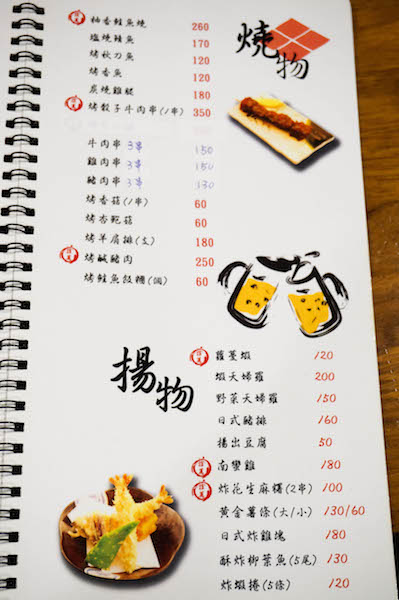 燒物
柚香鮭魚燒 260
塩燒鯖魚 170
烤秋刀魚 120
烤香魚 120
炭燒雞腿 180
烤骰子牛肉串(1串) 350
牛肉串 3串 150
雞肉串 3串 150
豬肉串 3串 130
烤香菇(1串) 60
烤杏鮑菇 60
烤羊肩排(支) 180
烤鹹豬肉 250
烤鮭魚飯糰(個) 60
揚物
蘿蔓蝦 120
蝦天婦羅 200
野菜天婦羅 150
日式豬排 160
揚出豆腐 50
南蠻雞 180
炸花生麻糬(2串) 100
黃金薯條(大/小) 130/60
日式炸雞塊 180
酥炸柳葉魚(5尾) 130
炸蝦捲(5條) 120